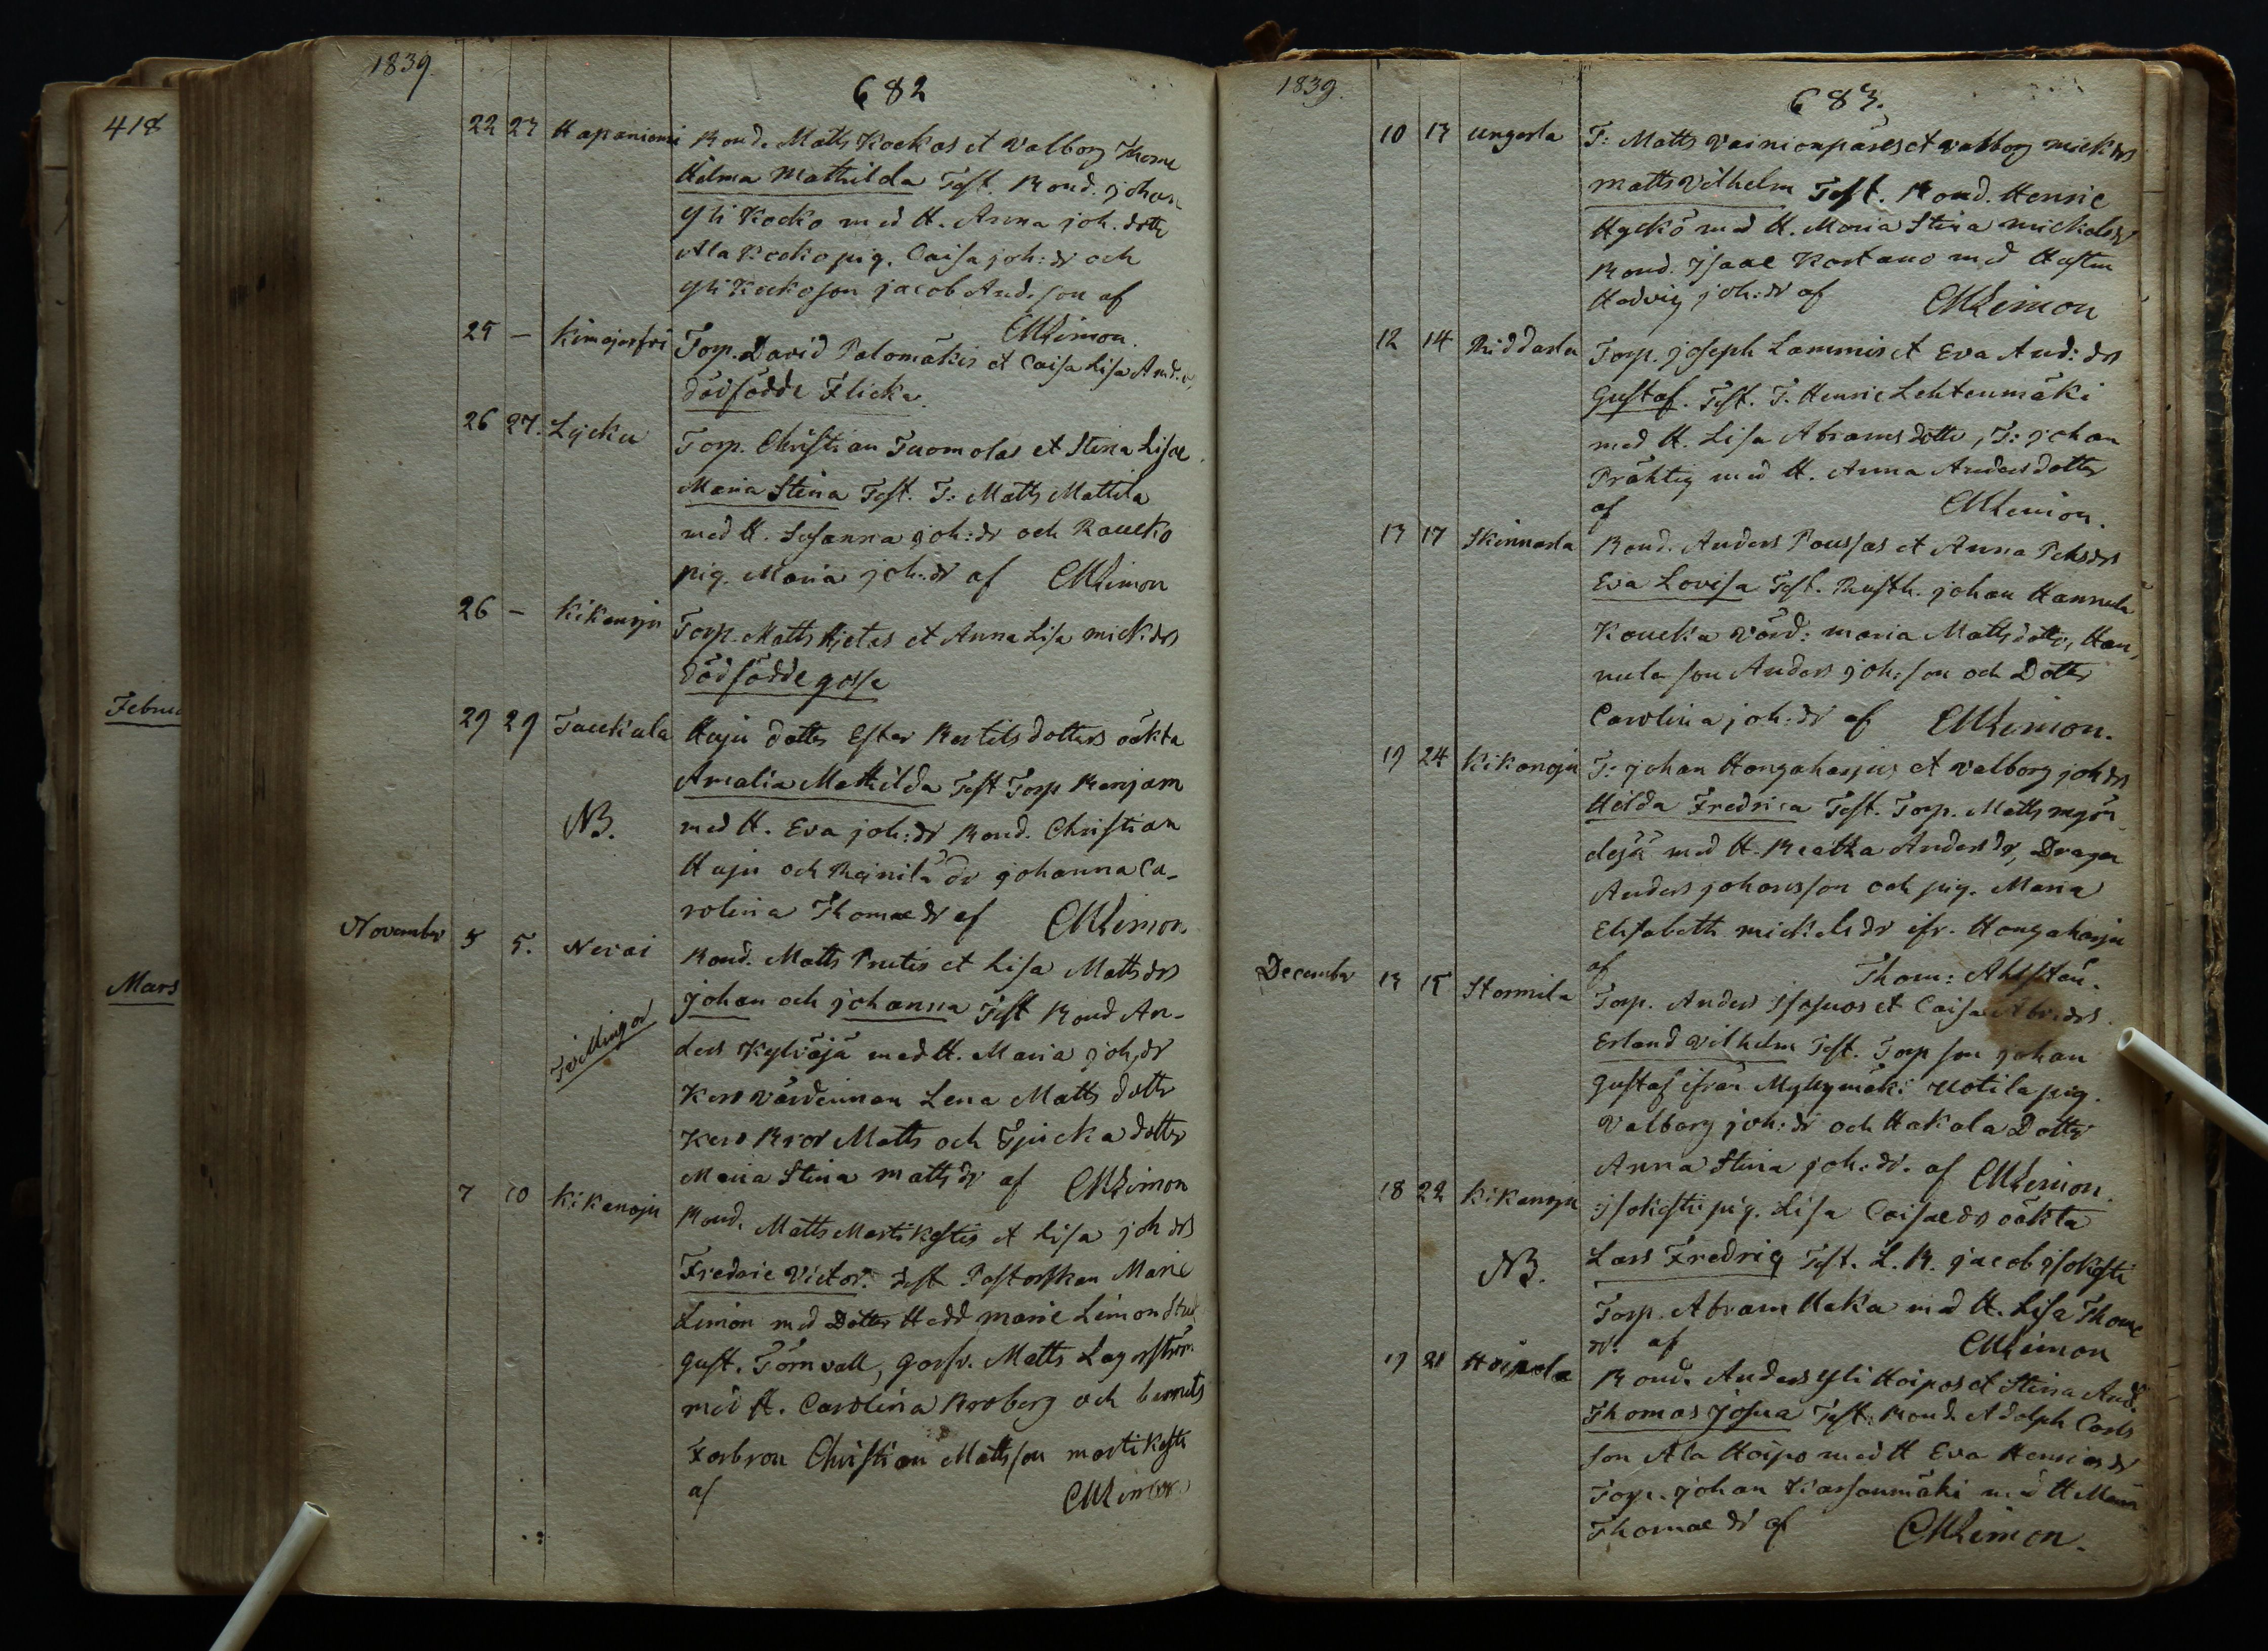 418
Februa
Mars
1839.
682
22 23 Hapaniemi Bond. Matts Kockos et Valborg Thome
Hilma Mathilda Test. Bond. Johan
Yli Kocko med H. Anna Joh. dotte
Ala Kocko pig. Caisa Joh: dr och
Yli Kocko son Jacob And. son af
CMLimon.
25 – Kimejerfvi Torp. David Palomäkis et Caisa Lisa And. d
dödfödde Flicka.
26 27. Lycku Torp. Christian Tuomolas et Stina Lisae
Maria Stina Test. T: Matts Mattila
med H. Susanna Joh: dr och Raucko
pig. Maria Joh: dr af CMLimon
26 – Kikanoju Torp. Matts Hjetas et Anna Lisa Mick: drs
dödfödde gosse
29 29 Tauckula Haju dotter Ester Bertils dotters oäkta
Amalia Mathilda Test Torp Benjam
NB. med H. Eva Joh: dr Bond. Christian
Haju och Reinilä dr Johanna Ca-
rolina Thomae dr af CMLimon.
November 5 5. Nevoi Bond. Matts Prutis et Lisa Matts drs
Johan och Johanna Test Bond An-
Tvillingar
ders Kylväjä med H. Maria Joh, dr
Kers värdinnan Lena Matts dottr
Kers Bror Matts och Tjucka dotter
Maria Stina Matts dr af CMLimon
7 10 Kikanoju Bond. Matts Martikestis et Lisa Joh drs
Fredric Victor. Test Pastorskan Marie
Limon med Dotter Hedd Marie Limon Stud
Gust. Törnvall, Garfv. Matts Lagerström
med H. Carolina Broberg och barnets
Farbron Christian Mattsson Martikesti
af CMLimon
1839.
683.
10 13 Ungarla T: Matts Vainionpääs et Valborg Mick drs
Matts Vilhelm Test. Bond. Henric
Hyckö med H. Maria Stina Mickelsdr
Bond. Isaac Kartano med Hustru
Hedvig Joh: dr af CMLimon
12 14 Riddarla Torp. Joseph Lammis et Eva And: drs
Gustaf. Test. T. Henric Lehtenmäki
med H. Lisa Abrams dotte, T: Johan
Präktig med H. Anna Anders dotter
af CMLimon.
13 17 Skinnarla Bond. Anders Poussas et Anna Pehrs drs
Eva Lovisa Test. Rusth. Johan Hannula
Koucka värd: Maria Matts dotte, Han,
nula son Anders Joh: son och Dotter
Carolina Joh: dr af CMLimon.
19 24 Kikanoju T: Johan Hongaharjus et Valborg Joh drs
Hilda Fredrica Test. Torp. Matts Myör
dejä med H. Beatha Anders dr, Dragon
Anders Johansson och pig. Maria
Elisabeth Mickels dr ifr. Hongaharju
af Thom: Ahlstån.
December 13 15 Stormila Torp. Anders Isosuos et Caisa Abr: drs.
Erland Vilhelm Test. Torp son Johan
Gustaf ifrån Myllymäki Uotila pig.
Valborg Joh: dr och Hakala Dotter
Anna Stina Joh: dr. af CMLimon.
18 22 Kikanoju Isokesti pig. Lisa Caisae dr oäkta
NB. Lars Fredric Test. L. B. Jacob Isokesti
Torp. Abram Haka med H. Lisa Thomae
dr. af CMLimon
19 21 Hoipola Bond. Anders Yli Hoipos et Stina And.
Thomas Josua Test: Bond. Adolph Carls
son Ala Hoipo med H Eva Henrics dr
Torp. Johan Karsanmäki med H Maria
Thomae dr af CMLimon.